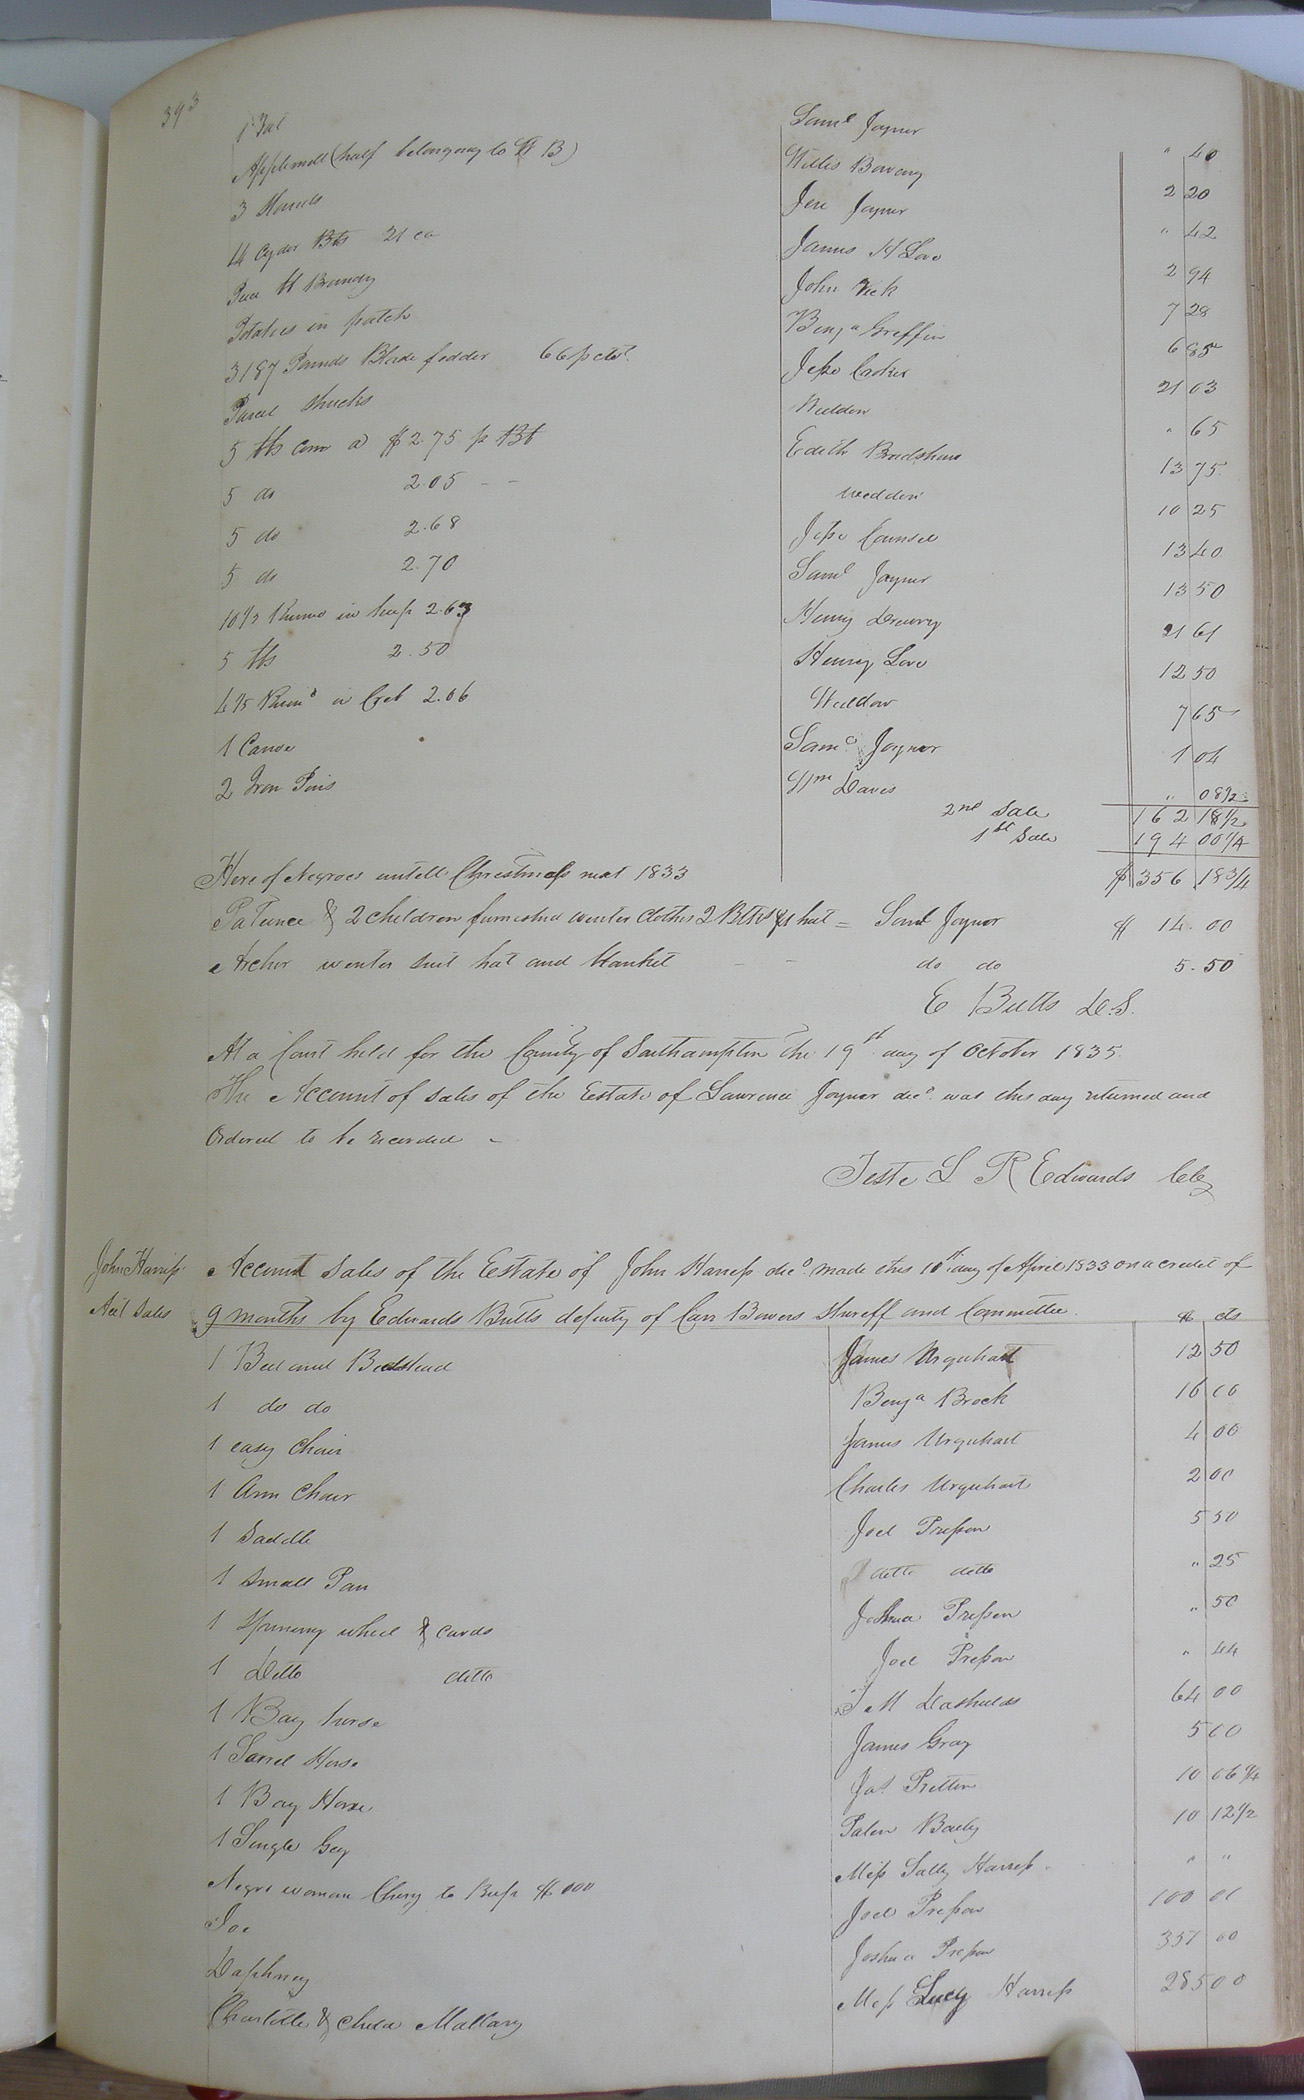 393
Saml Joyner " 40
Applemill (half belonging to W B) Willis Bowing 2 20
3 Jese Joyner " 42
14 Cyder Bts 21 ca James H Love 2 94
Brandy John Vick 7 28
Potatoes in patch Benja Griffin 6 85
3187 Pounds Blade fodder 66 p ct Jesse Croker 21 03
Parcel Shucks Widdow " 65
5 bbs corn a $2.75 p Bb Edith Bradshaw 13 75
5 do 2.05 -- Widdow 10 25
5 do 2.68 Jesse Counsel 13 40
5 do 2.70 Saml Joyner 13 50
in heap 2.63 Henry Drewry 21 61
5 bbs 2.50 Henry Love 12 50
in Crib 2.06 Widdow 7 65
1 Canoe Saml Joyner 1 04
2 Iron Pins Wm Daves " 08 1/2
2nd Sale 162 18 1/2
1st Sale 194 00 1/4
Hire of Negroes untill Christmass next 1833 $ 356 18 3/4
Patience & 2 children furnished winter clothes & hat = Saml Joyner $ 14.00
Archer winter suit hat and blanket - - do do 5.50
E Butts D.S.
At a Court held for the County of Southampton the 19th day of October 1835.
The Account of sales of the Estate of Lawrence Joyner decd. was this day returned and
Ordered to be recorded -
Teste L R Edwards Clk
John Harriss Account Sales of the Estate of John Harriss decd. made this 10th day of April 1833 on a credit of
Act Sales 9 months by Edwards Butts deputy of Carr Bowers Sheriff and Committee. $ cts
1 Bed and Bedstead James Urquhart 12 50
1 do do Benja Brock 16 00
1 easy Chair James Urquhart 4 00
1 Arm Chair Charles Urquhart 2 00
1 Saddle Joel Presson 5 50
1 Small Pan ditto ditto " 25
1 Spinning wheel & cards Joshua Presson " 50
1 Ditto ditto Joel Presson " 44
1 Bay horse T M Dashields 64 00
1 Sorrel Horse James Gray 5 00
1 Bay Horse Jas. Pretlow 10 06 1/4
1 Single Gig Baily 10 12 1/2
Negro woman Chery to $ 000 Miss Sally Harriss. " "
Joe Joel Presson 100 00
Daphney Joshua Presson 357 00
Charlotte & child Mallary Miss Lucy Harriss 285 00